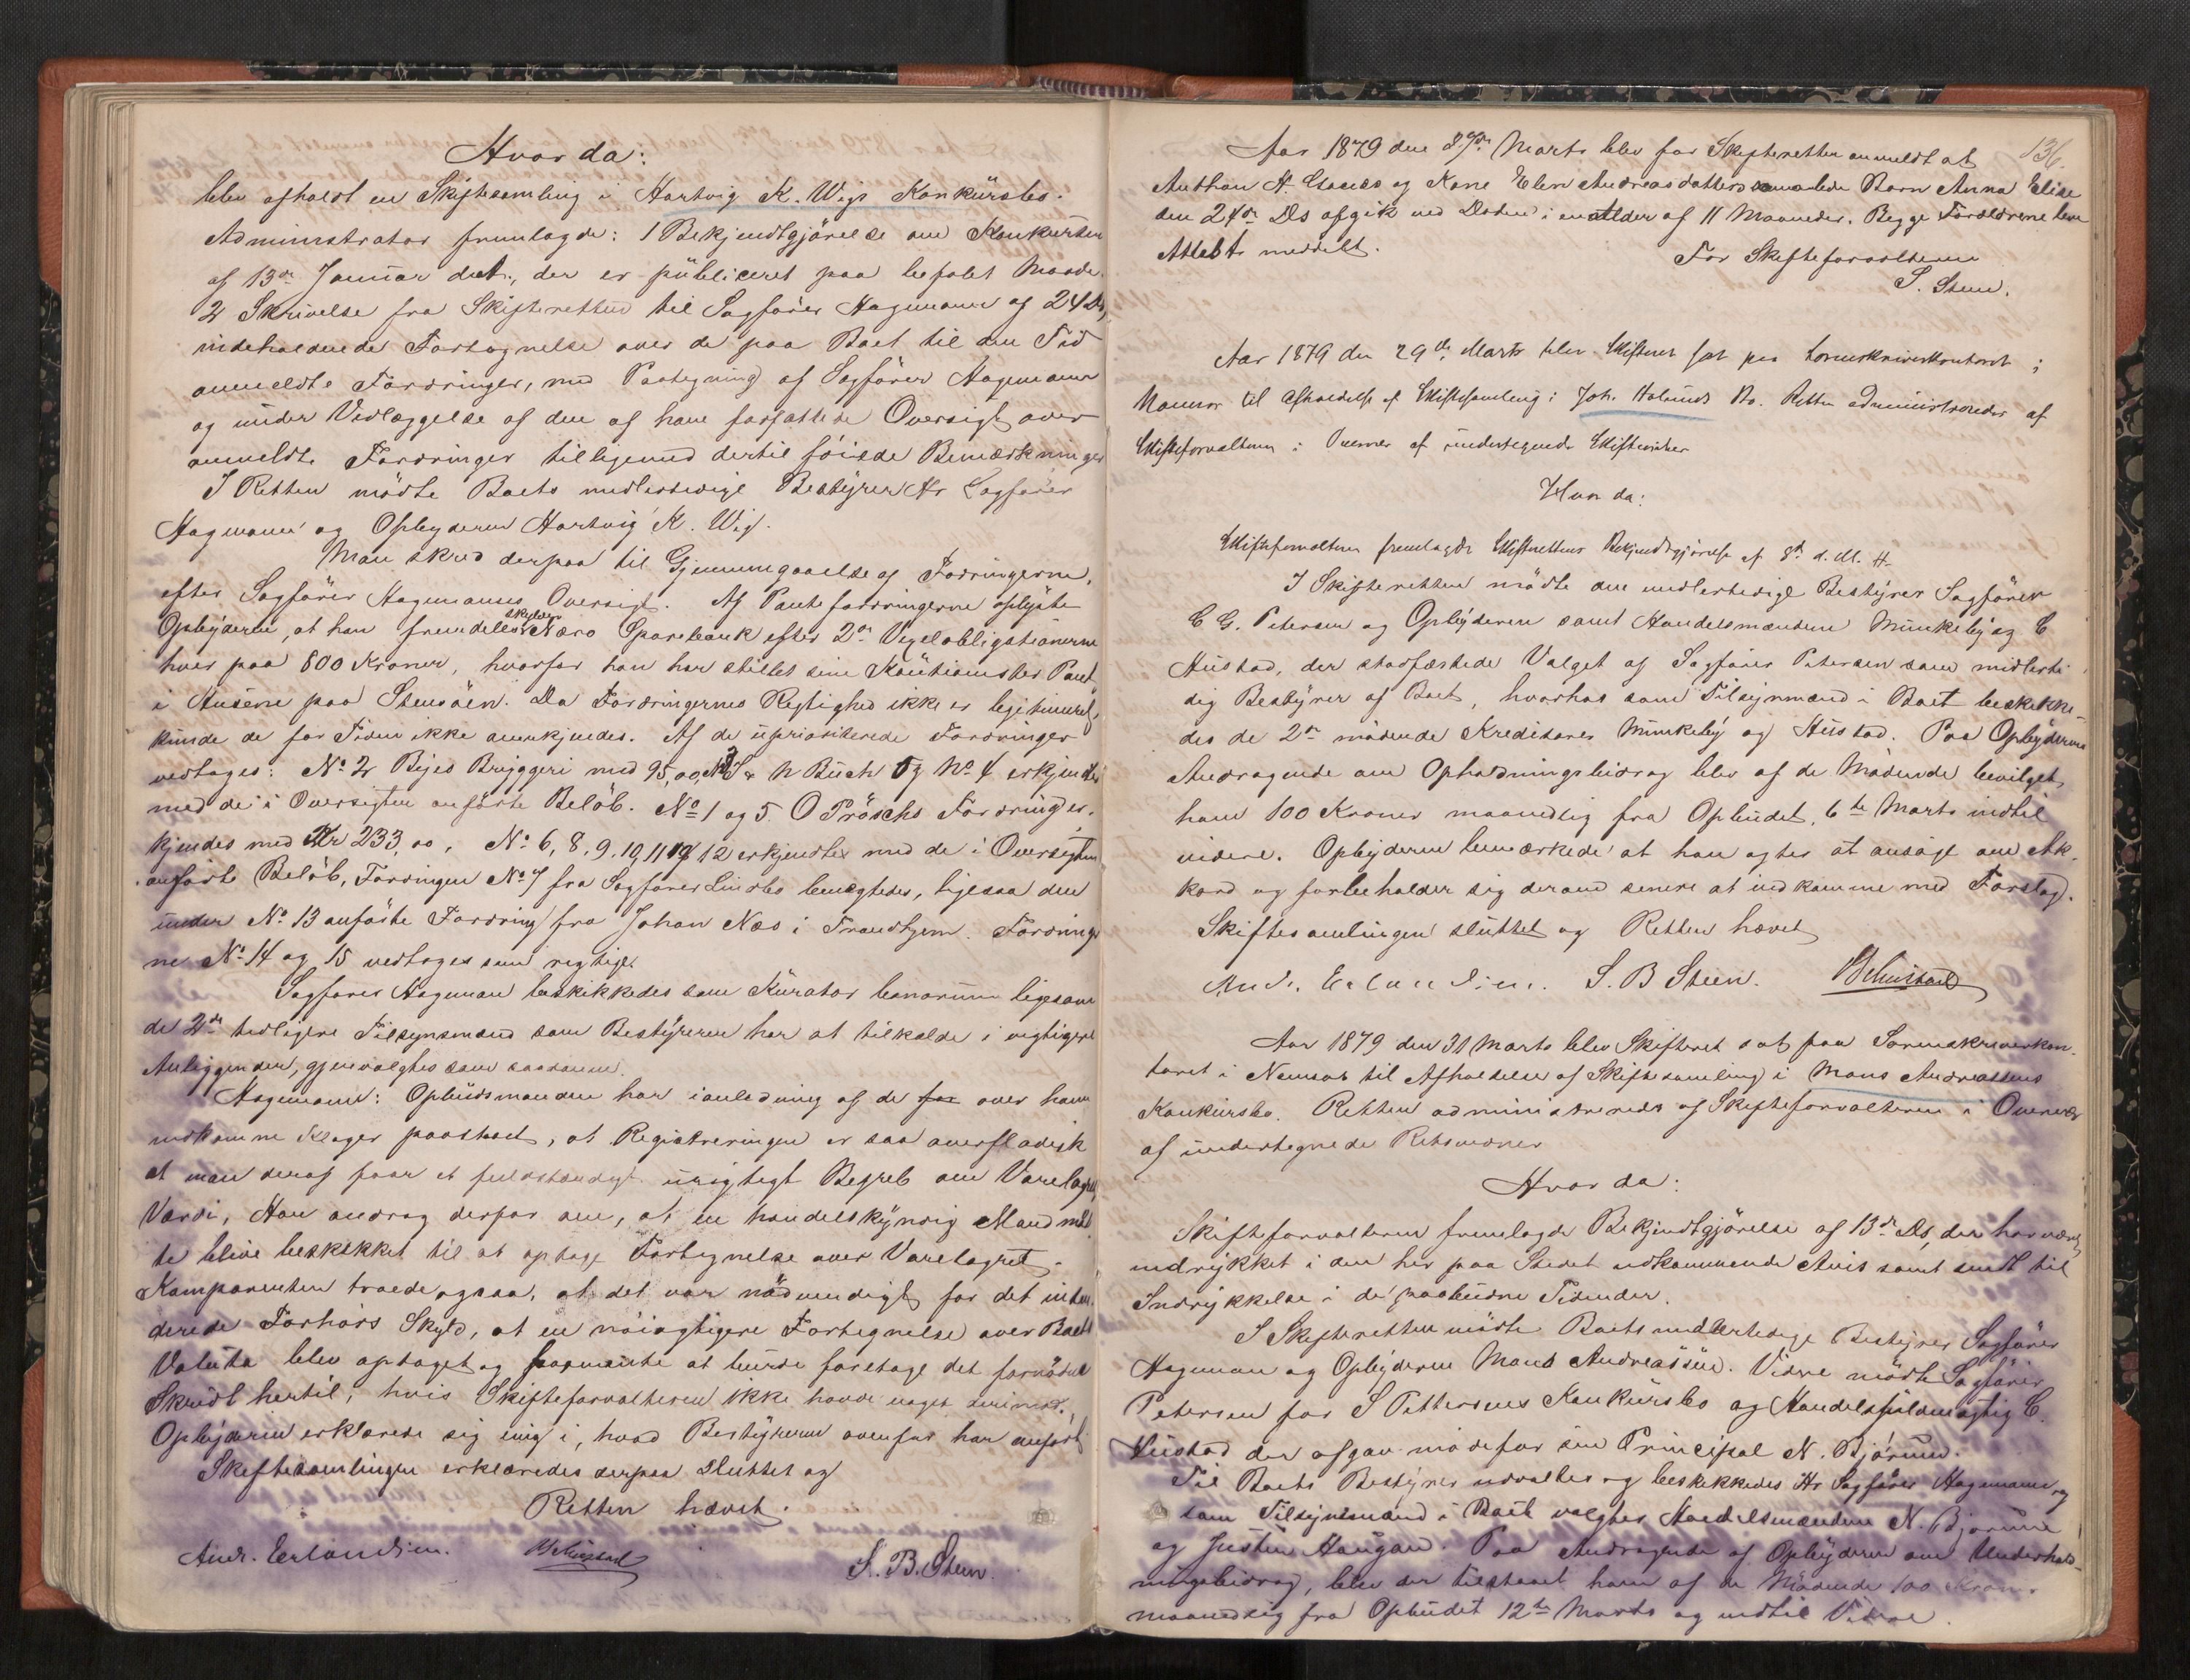 Hvor da:
blev afholdt en Skiftesamling i Hartvig K. Wigs Konkursbo.
Administrator fremlagde: 1 Bekjendtgjörelse om Konkursen
af 13de Januar d.A., der er publiceret paa befalet Maade.
2 Skrivelse fra Skifteretten til Sagförer Hagemann af 24 Ds,
indeholdende Fortegnelse over de paa Boet til den Tid
anmeldte Fordringer, med Paategning af Sagförer Hagemann
og under Vedlæggelse af den af ham forfattede Oversigt over
anmeldte Fordringer tilligemed dertil föiede Bemærkninger
I Retten mödte Boets midlertidige Bestyrer Hr Sagförer
Hagemann og Opbyderen Hartvig K. Wig.
Man skred derpaa til Gjennemgaaelse af Fordringerne,
efter Sagförer Hagemanns Oversigt. Af Pantefordringerne oplyste
Opbyderen, at han fremdeles skylder Næro Sparebank efter 2de Vexelobligationerne
hver paa 800 Kroner, hvorfor han har stillet sine Kautionister Pant
i Husene paa Stensöen. Da Fordringernes Rigtighed ikke er legitimeret,
kunde de for Tiden ikke anerkjendes. Af de uprioriterede Fordringer
vedtoges: No 2 Byes Bryggeri med 95,00, No 3 & N Buch og No 4 erkjendtes
med de i Oversigten anförte Belöb. No 1 og 5. O Pröschs Fordring er-
kjendes med Kr 233,00, No 6, 8, 9, 10, 11 og 12 erkjendtes med de i Oversigten
anförte Belöb, Fordringen No 7 fra Sagförer Lindbo benegtedes, ligesaa den
under No 13 anförte Fordring fra Johan Næs i Trondhjem. Fordringer
ne No 14 og 15 vedtoges som rigtige.
Sagförer Hageman beskikkedes som Kurator bonorum ligesom
de 2de tidligere Tilsynsmænd som Bestyreren har at tilkalde i vigtigere
Anliggender, gjenvalgtes som saadanne.
Hagemann: Opbudsmanden har i anledning af de for over ham
indkomne Klager paastaaet, at Registreringen er saa overfladisk
at man deraf faar et fuldstændigt urigtigt Begreb om Varelagrets
Værdi, Han androg derfor om, at en handelskyndig Mand maat
te blive beskikket til at optage Fortegnelse over Varelagret.
Komparenten troede ogsaa, at det var nödvendigt for det inten-
derede Forhörs Skyld, at en nöiagtigere Fortegnelse over Boets
Valuta blev optaget og formente at burde foretage det fornödne
Skridt hertil, hvis Skifteforvalteren ikke havde noget derimod.
Opbyderen erklærede sig enig i, hvad Bestyreren ovenfor har anfört
Skiftesamlingen erklæredes derpaa sluttet og
Retten hævet.
Andr. Erlandsen. S. B. Steen.
136.
Aar 1879 den Marts blev for Skifteretten anmeldt at
og Kone Elen Andreasdatters Barn Anna Elise
den 24de Ds afgik ved Döden i en alder af 11 Maaneder. Begge Forældrene leve
Attest meddelt.
For Skifteforvalteren
S. Steen.
Aar 1879 den 29de Marts blev Skifteret sat paa Sorenskriverkontoret i
Namsos til Afholdelse af Skiftesamling i Joh. Holunds Bo. Retten administreredes af
Skifteforvalteren i Overvær af undertegnede Skiftevidner
Hvor da:
Skifteforvalteren fremlagde Skifterettens Bekjendtgjörelse af 8de d. M.
I Skifteretten mödte den midlertidige Bestyrer Sagförer
C G. Petersen og Opbyderen samt Handelsmændene Munkeby og C
Hustad, der stadfæstede Valget af Sagförer Petersen som midlerti
dig Bestyrer af Boet, hvorhos som Tilsynmænd i Boet beskikke-
des de 2de mödende Kreditorer Munkeby og Hustad. Paa Opbyderens
Andragende om Opholdningsbidrag blev af de Mödende bevilget
ham 100 Kroner maanedlig fra Opbudet, 6te Marts indtil
videre. Opbyderen bemærkede at han agter at ansöge om Ak-
kord og forbeholder sig derom senere at indkomme med Forslag.
Skiftesamlingen sluttet og Retten hævet
Andr. Erlandsen. S. B Steen.
Aar 1879 den 31 Marts blev Skifteret sat paa Sorenskriverkon-
toret i Namsos til Afholdelse af Skiftesamling i Mons Andreassens
Konkursbo. Retten administreredes af Skifteforvalteren i Overvær
af undertegnede Retsvidner
Hvor da:
Skifteforvalteren fremlagde Bekjendtgjörelse af 13de Ds, der har været
indrykket i den her paa Stedet udkommende Avis samt sendt til
Indrykkelse i de paabudne Tidender.
I Skifteretten mödte Boets midlertidige Bestyrer Sagförer
Hageman og Opbyderen Mons Andreassen. Videre mödte Sagförer
Petersen for S Pettersens Konkursbo og Handelsfuldmægtig C.
Hustad der afgav möde for sin Principal N. Björum.
Til Boets Bestyrer udvalgtes og beskikkedes Hr Sagförer Hagemann og
som Tilsynsmænd i Boet valgtes Handelsmændene N. Bjorum
og Justin Haugan. Paa Andragende af Opbyderen om Underhold-
ningsbidrag, blev der tilstaaet ham af de Mödende 100 Kroner
maanedlig fra Opbudet 12te Marts og indtil Videre.